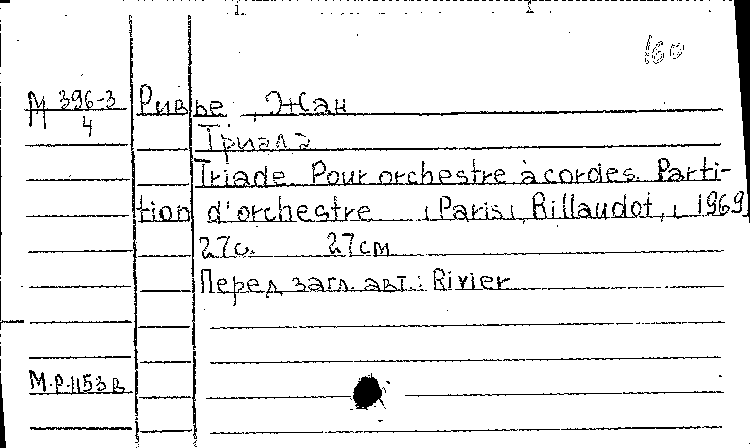 160
М 396-3
4
Ривье, Жан
Триада
Triade. Pour orchestre à cordes. Parti-
tion d'orchestre [Paris], Billaudot, [1969]
27с. 27см
Перед загл. авт.: Rivier
М.Р.1153в